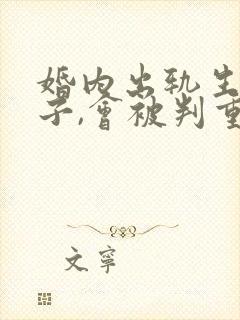 婚内出轨生
子,會被判重
文寧